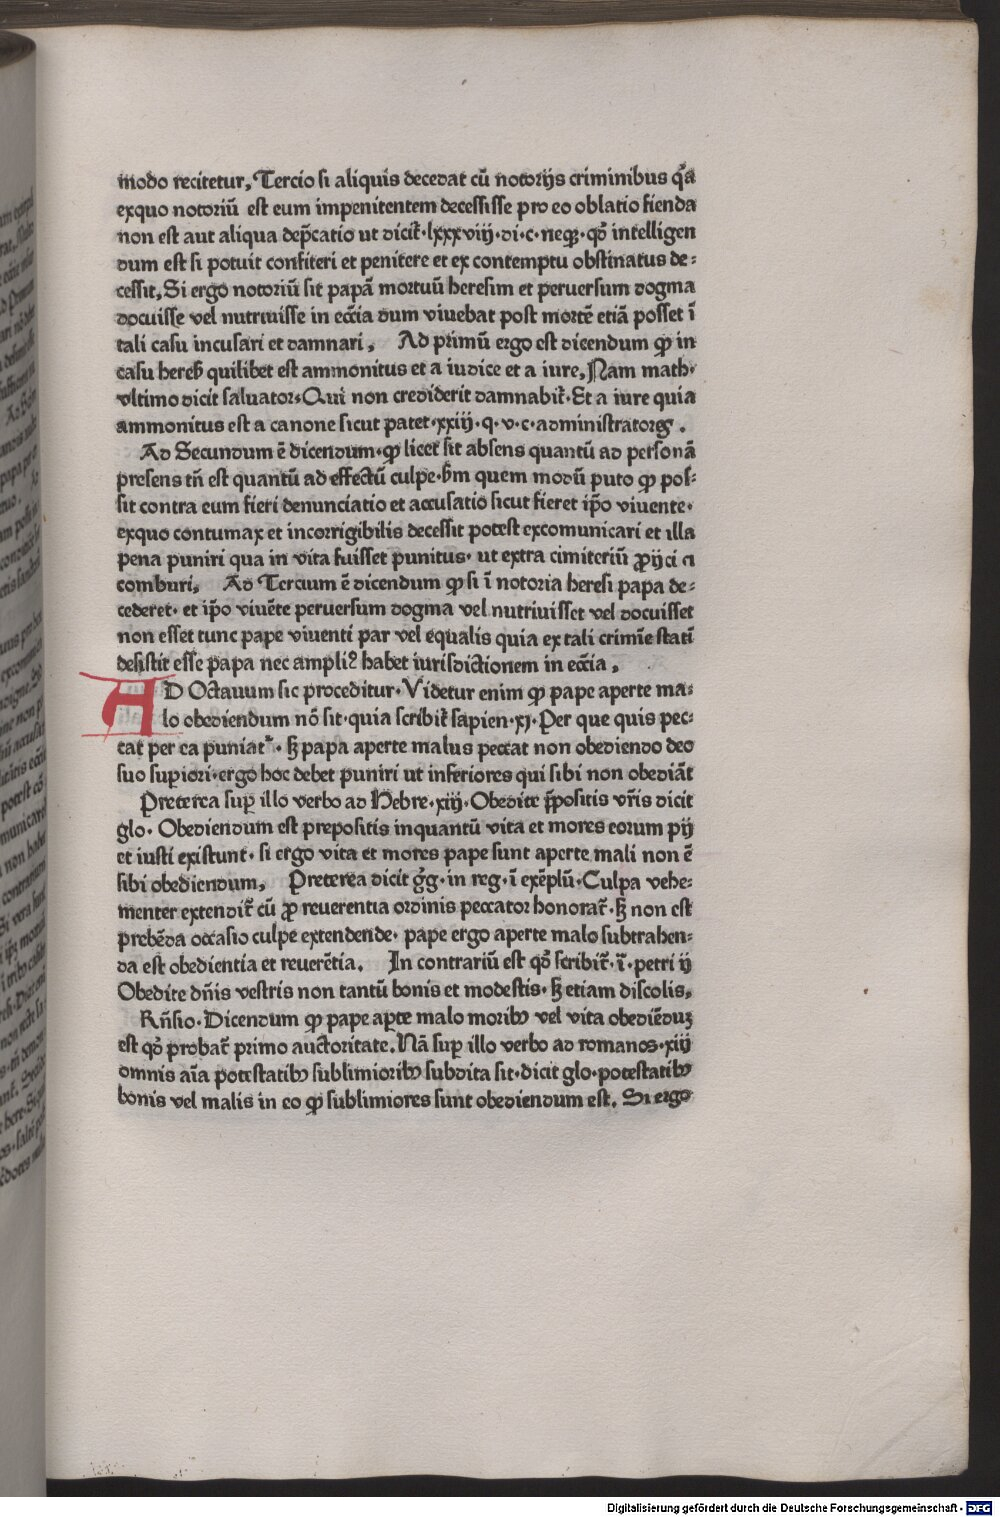 modo recitetur, Tercio si aliquis decedat cũ notorijs criminibus q̃a
exquo notoriũ est eum impenitentem decessisse pro eo oblatio fienda
non est aut aliqua dep̃catio ut dicit᷑·lxxxviij·di·c·neqꝫ·qð intelligen
dum est si potuit confiteri et penitere et ex contemptu obstinatus de⸗
cessit, Si ergo notoriũ sit papã mortuũ heresim et peruersum dogma
docuisse vel nutriuisse in eccĩa dum viuebat post mortẽ etiã posset ĩ
tali casu incusari et damnari, Ad primũ ergo est dicendum ꝙ in
casu hereẜ quilibet est ammonitus et a iudice et a iure, Nam math·
vltimo dicit saluator·Qui non crediderit damnabit᷑·Et a iure quia
ammonitus est a canone sicut patet·xxiij·q·v·c·administratorꝭ.
Ad Secundum ẽ dicendum·ꝙ licet sit absens quantũ ad personã
presens tñ est quantũ ad effectũ culpe·ẜm quem modũ puto ꝙ pos⸗
sit contra eum fieri denunciatio et accusatio sicut fieret ip̃o viuente·
exquo contumax et incorrigibilis decessit potest excomunicari et illa
pena puniri qua in vita fuisset punitus· ut extra cimiteriũ ꝓijci a
comburi, Ad Tercium ẽ dicendum ꝙ si ĩ notoria heresi papa de⸗
cederet· et ip̃o viuẽte peruersum dogma vel nutriuisset vel docuisset
non esset tunc pape viuenti par vel equalis quia ex tali crimĩe statĩ
desistit esse papa nec ampliꝰ habet iurisdictionem in eccĩa,
AD Octauum sic proceditur·Videtur enim ꝙ pape aperte ma⸗
lo obediendum nõ sit·quia scribit᷑ sapien·xj·Per que quis pec⸗
cat per ea puniat᷑·ẜꝫ papa aperte malus peccat non obediendo deo
suo sup̱iori·ergo hoc debet puniri ut inferiores qui sibi non obediãt
Preterea sup̱ illo verbo ad Hebre·xiij·Obedite p̃positis vr̃is dicit
glo·Obediendum est prepositis inquantũ vita et mores eorum pij
et iusti existunt·si ergo vita et mores pape sunt aperte mali non ẽ
sibi obediendum, Preterea dicit gg̃·in reg·ĩ exẽplũ·Culpa vehe⸗
menter extendit᷑ cũ ꝓ reuerentia ordinis peccator honorat᷑·ẜꝫ non est
prebẽda occasio culpe extendende·pape ergo aperte malo subtrahen⸗
da est obedientia et reuerẽtia, In contrariũ est qð scribit᷑·ĩ·petri ij
Obedite dñis vestris non tantũ bonis et modestis·ẜꝫ etiam discolis,
Rñsio·Dicendum ꝙ pape ap̱te malo moribꝫ vel vita obediẽduꝫ
est qð probat᷑ primo auctoritate.Nã sup̱ illo verbo ad romanos·xiij
omnis aĩa potestatibꝫ sublimioribꝫ subdita sit·dicit glo·potestatibꝫ
bonis vel malis in eo ꝙ sublimiores sunt obediendum est. Si ergo
Digitalisierung gefördert durch die Deutsche Forschungsgemeinschaft - DFG